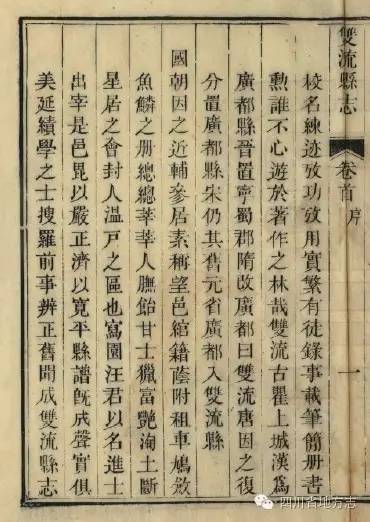 雙流縣志
卷首
序
一
校名練迹攷功效用實繁有徒錄事載筆簡册書
勲誰不心遊於著作之林哉雙流古瞿上城漢為
廣都縣晉置寧蜀郡隋改廣都曰雙流唐因之復
分置廣都縣宋仍其舊元省廣都入雙流縣
國朝因之近輔參居素稱望邑綰籍蔭附租車鳩斂
魚鱗之册總總莘莘人膴飴甘士獵富艷洵土斷
星居之會封人溫戸之區也寓園汪君以名進士
出宰是邑毘以嚴正濟以寬平縣譜旣成聲實俱
美延績學之士搜羅前事辨正舊聞成雙流縣志
四川省地方志